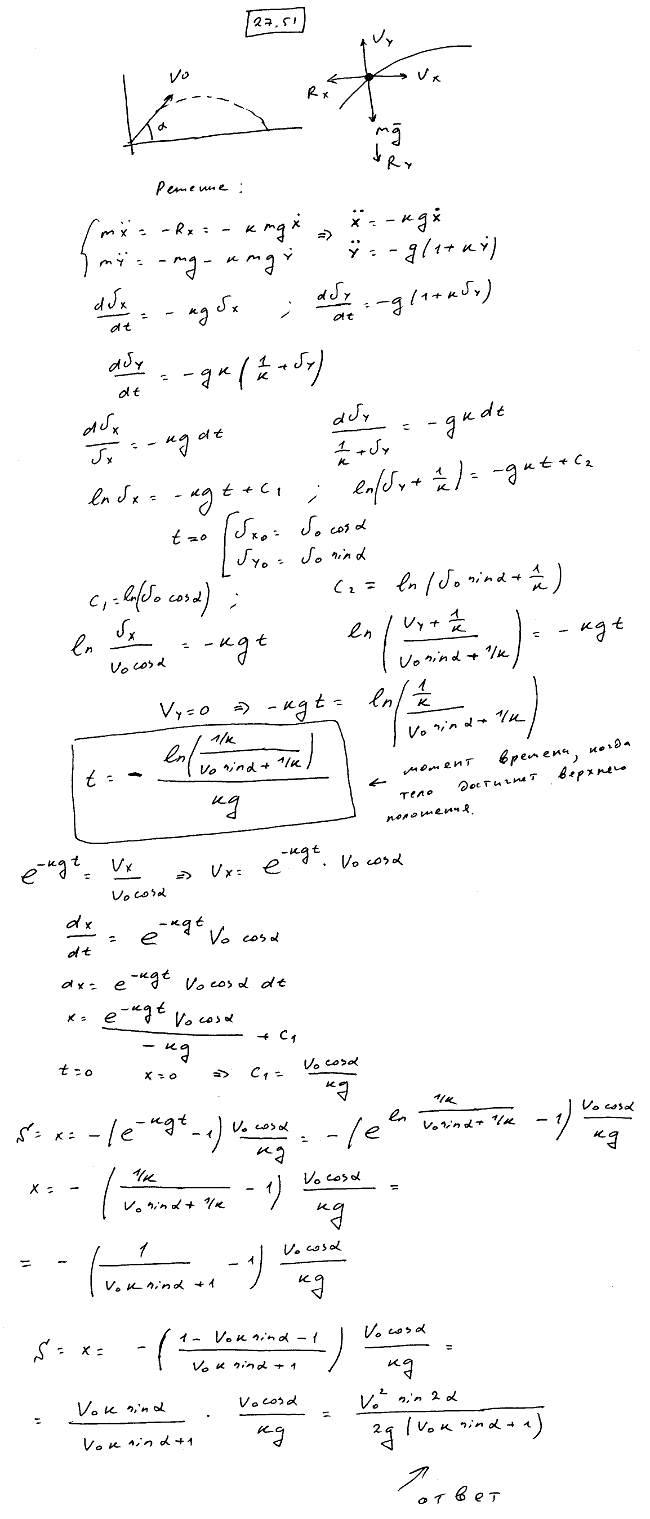 27.51
V0
α
Vy
Vx
Rx
mg̅
Ry
Решение :
{ mẍ = -Rx = - к mg ẋ ⇒ ẍ = - кgẋ
mÿ = - mg - к mg ẏ ÿ = - g(1+кẏ)
dVx/dt = - кg Vx ; dVy/dt = -g(1+кVy)
dVy/dt = -gк(1/к + Vy)
dVx/Vx = -кg dt dVy/(1/к + Vy) = - gк dt
ln Vx = -кg t + C1 ; ln(Vy + 1/к) = -gкt + C2
t=0 [ Vx0 = V0 cosα
Vy0 = V0 sinα
C1 = ln(V0 cosα) ; C2 = ln(V0 sinα + 1/к)
ln Vx/(V0 cosα) = -кgt ln((Vy + 1/к)/(V0 sinα + 1/к)) = - кgt
Vy=0 ⇒ -кgt = ln((1/к)/(V0 sinα + 1/к))
t = - ln((1/к)/(V0 sinα + 1/к))/кg
← момент времени, когда
тело достигнет верхнего
положения.
e^(-кgt) = Vx/(V0 cosα) ⇒ Vx = e^(-кgt) · V0 cosα
dx/dt = e^(-кgt) V0 cosα
dx = e^(-кgt) V0 cosα dt
x = e^(-кgt) V0 cosα/(-кg) + C1
t=0 x=0 ⇒ C1 = V0 cosα/кg
S = x = -(e^(-кgt) -1) V0 cosα/кg = -(e^(ln (1/к)/(V0 sinα + 1/к)) - 1) V0 cosα/кg
x = - ((1/к)/(V0 sinα + 1/к) - 1) V0 cosα/кg =
= - (1/(V0 к sinα + 1) - 1) V0 cosα/кg
S = x = -((1 - V0к sinα - 1)/(V0к sinα + 1)) V0 cosα/кg =
= V0к sinα/(V0к sinα+1) · V0 cosα/кg = V0² sin2α/(2g(V0к sinα + 1))
ответ